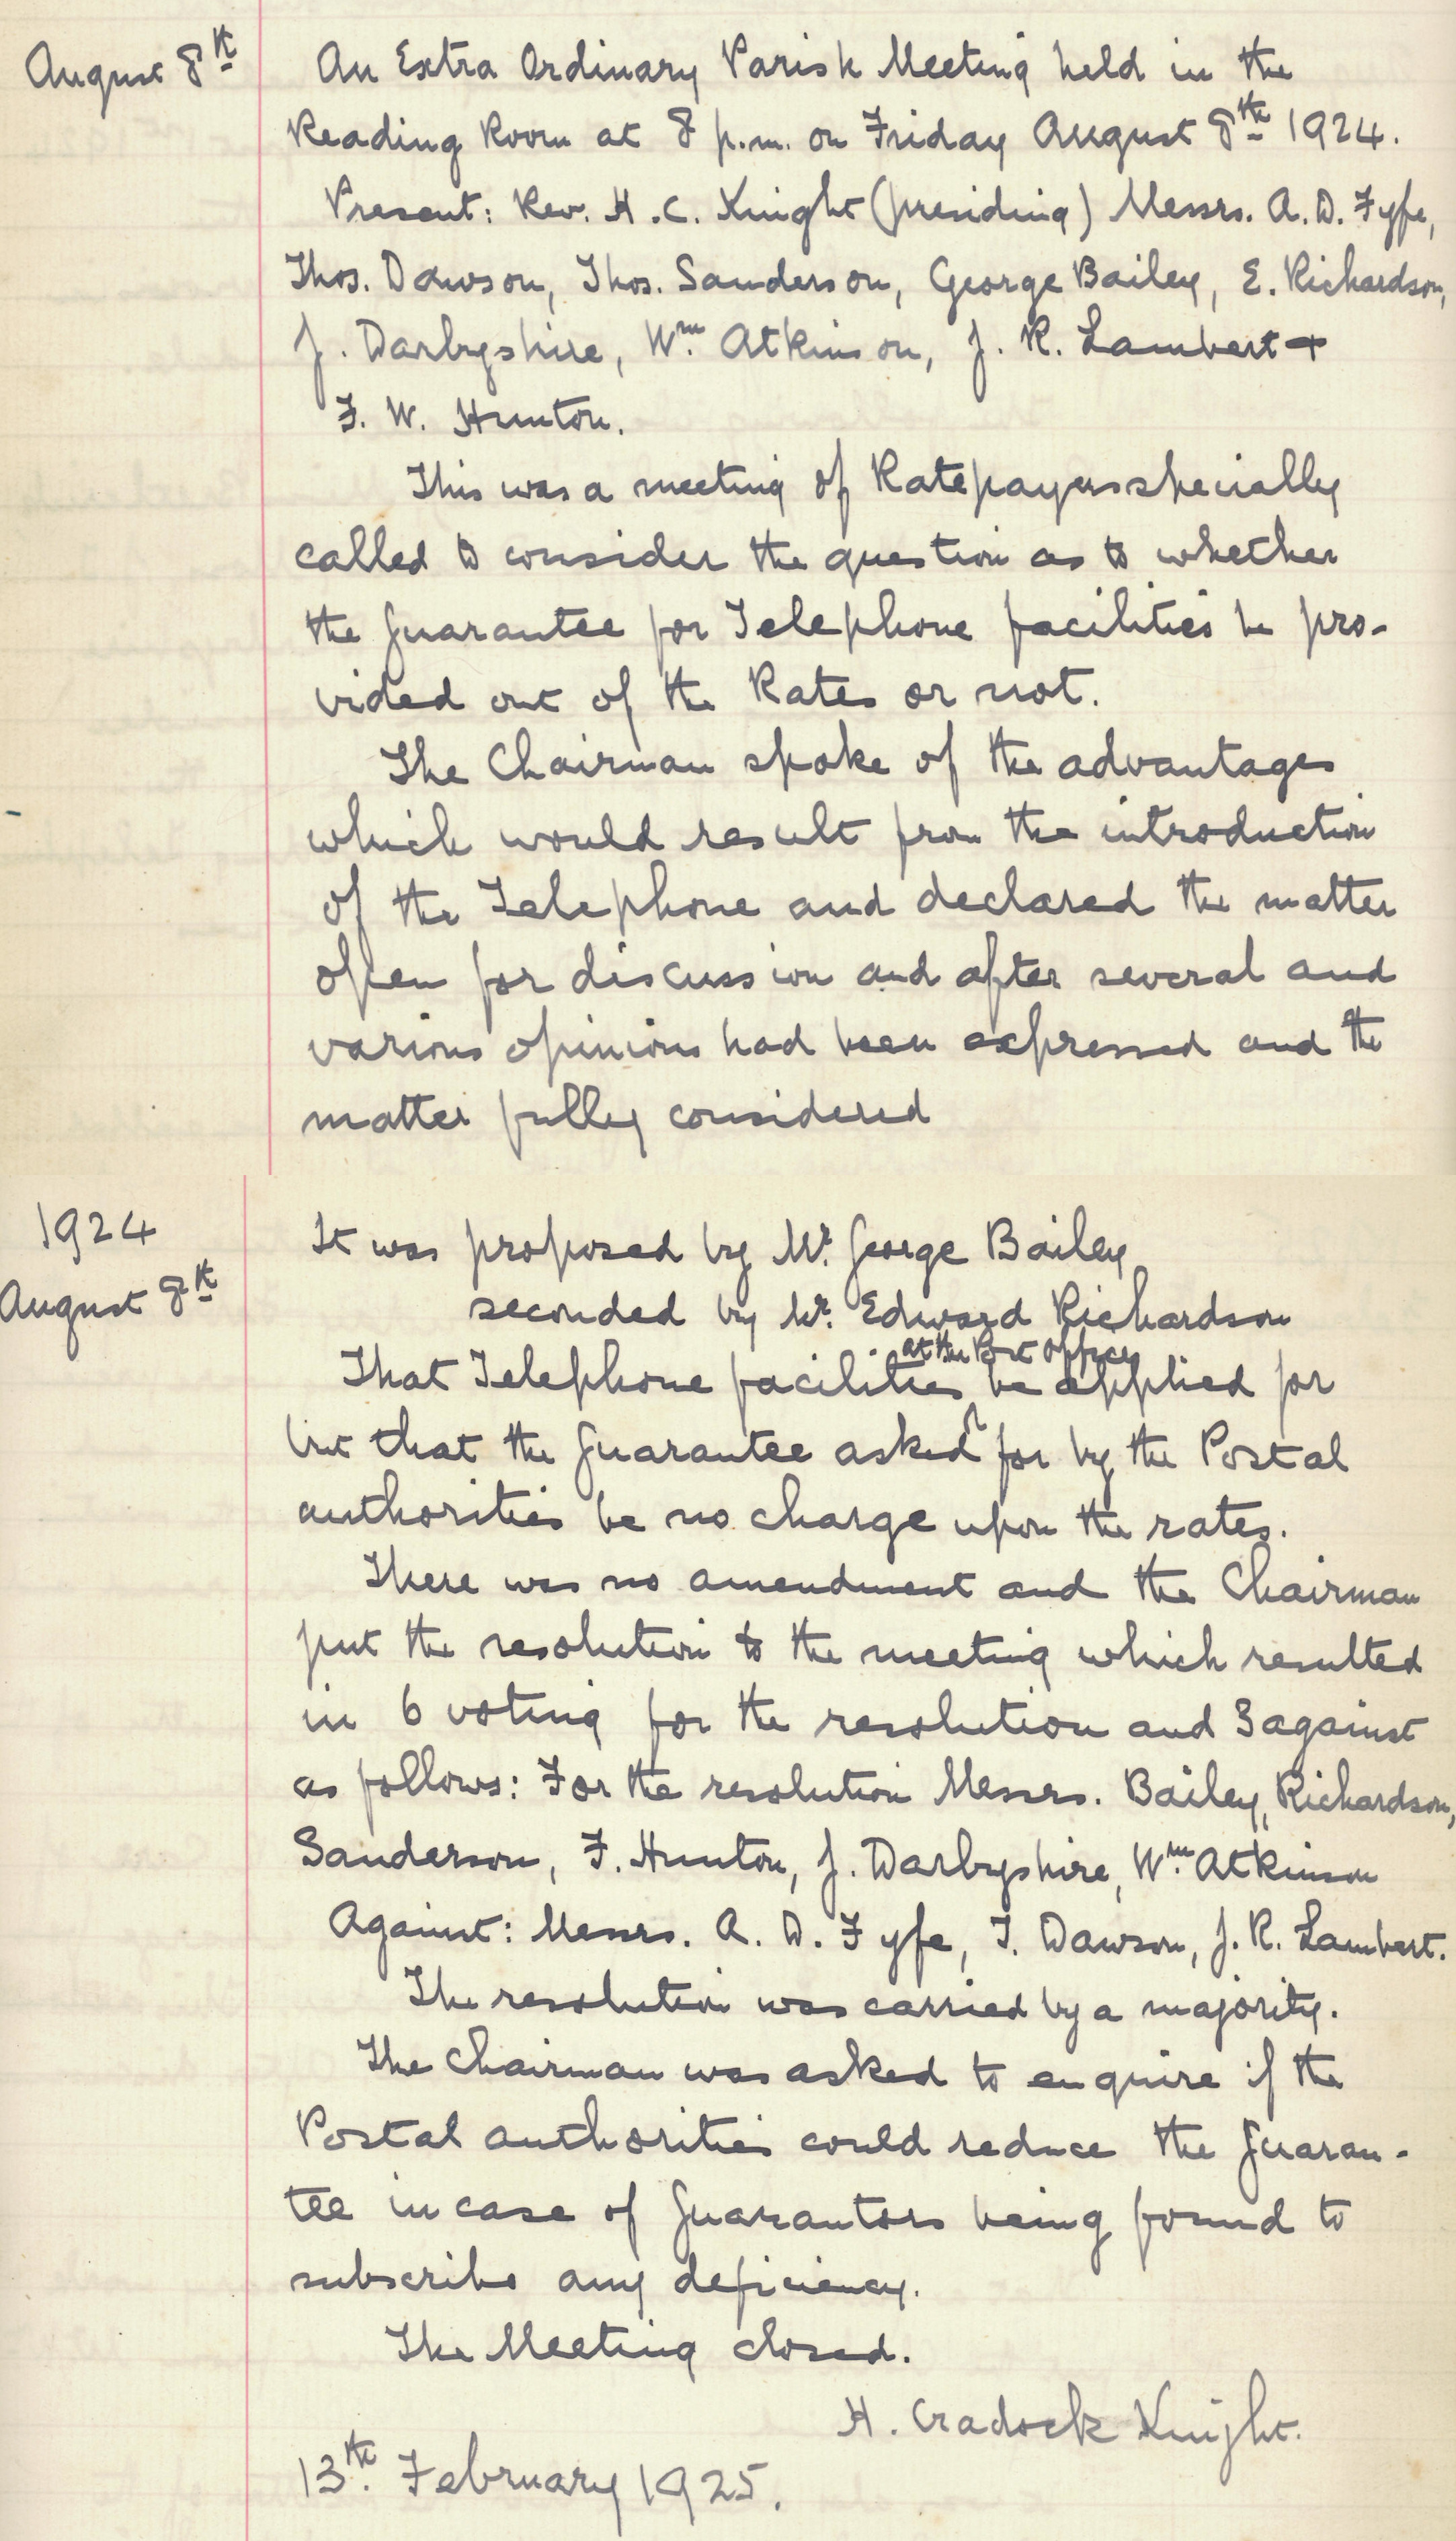 August 8th
An Extra Ordinary Parish Meeting held in the
Reading Room at 8 p.m. on Friday August 8th 1924.
Present: Rev. H. C. Knight (presiding) Messrs. A. D. Fyfe,
Thos. Dawson, Thos. Sanderson, George Bailey, E. Richardson,
J. Darbyshire, Wm. Atkinson, J. R. Lambert +
F. W. Hunton.
This was a meeting of Ratepayers specially
called to consider the question as to whether
the Guarantee for Telephone facilities be pro-
vided out of the Rates or not.
The Chairman spoke of the advantages
which would result from the introduction
of the Telephone and declared the matter
open for discussion and after several and
various opinions had been expressed and the
matter fully considered
1924
August 8th
It was proposed by Mr. George Bailey
seconded by Mr. Edward Richardson
at the Post Office
That Telephone facilities be applied for
but that the Guarantee asked for by the Postal
authorities be no charge upon the rates.
There was no amendment and the Chairman
put the resolution to the meeting which resulted
in 6 voting for the resolution and 3 against
as follows: For the resolution Messrs. Bailey, Richardson,
Sanderson, F. Hunton, J. Darbyshire, Wm. Atkinson
Against: Messrs. A. D. Fyfe, T. Dawson, J. R. Lambert.
The resolution was carried by a majority.
The Chairman was asked to enquire if the
Postal authorities could reduce the Guaran-
tee in case of Guarantors being found to
subscribe any deficiency.
The Meeting closed.
H. Cradock Knight.
13th. February 1925.